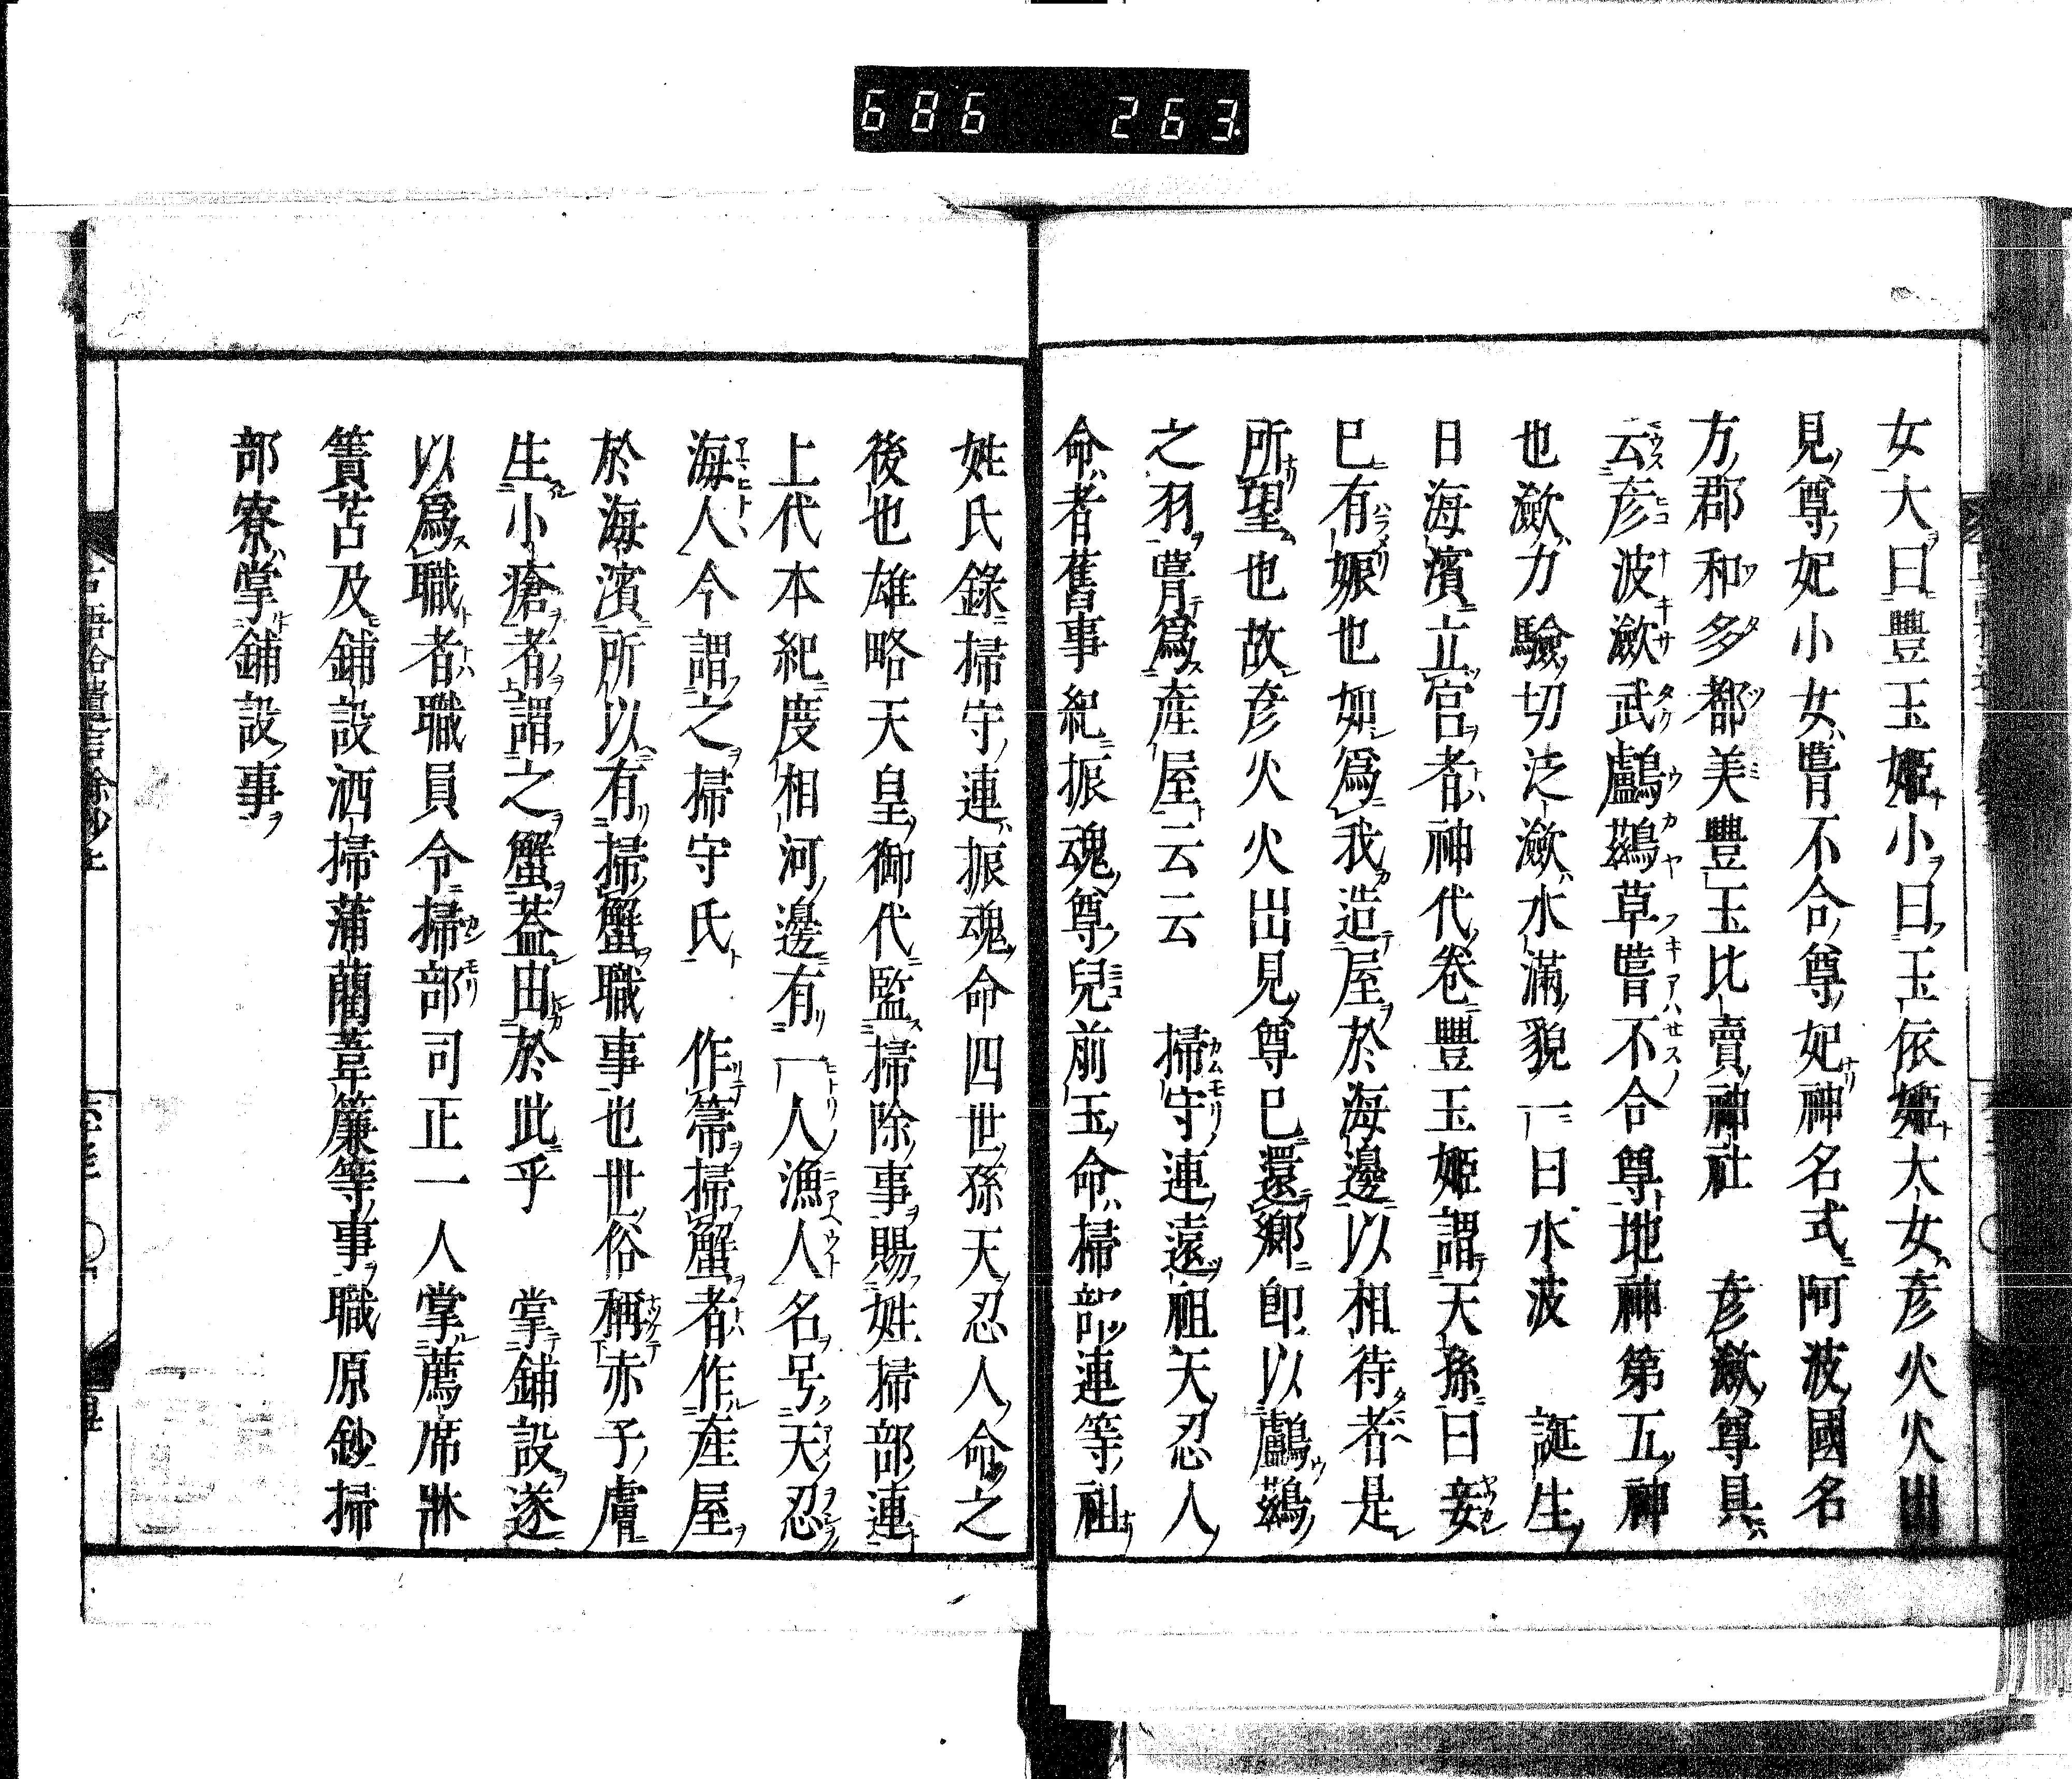 686 263
女大曰豐玉姬小曰玉依姬大女彥火火出
見尊妃小女鸕不合尊妃神名式阿波國名
方郡和多都美豐玉比賣神社 彥瀲尊具
云彥波瀲武鸕鷀草葺不合尊地神第五神
也瀲力驗切泛瀲水滿貌一曰水波 誕生
日海濱立宮者神代卷豐玉姬謂天孫曰妾
已有娠也如爲我造屋於海邊以相待者是
所望也故彥火火出見尊已還鄉即以鸕鷀
之羽葺爲產屋云云 掃守連遠祖天忍人
命者舊事紀振魂尊兒前玉命掃部連等祖
姓氏錄掃守連振魂命四世孫天忍人命之
後也雄略天皇御代監掃除事賜姓掃部連
上代本紀度相河邊有一人漁人名号天忍
海人今謂之掃守氏 作箒掃蟹者作產屋
於海濱所以有掃蟹職事也世俗稱赤子膚
生小瘡者謂之蟹蓋由於此乎 掌鋪設遂
以爲職者職員令掃部司正一人掌薦席牀
簀苫及鋪設洒掃蒲藺葦簾等事職原鈔掃
部寮掌鋪設事
古語拾遺言餘抄上